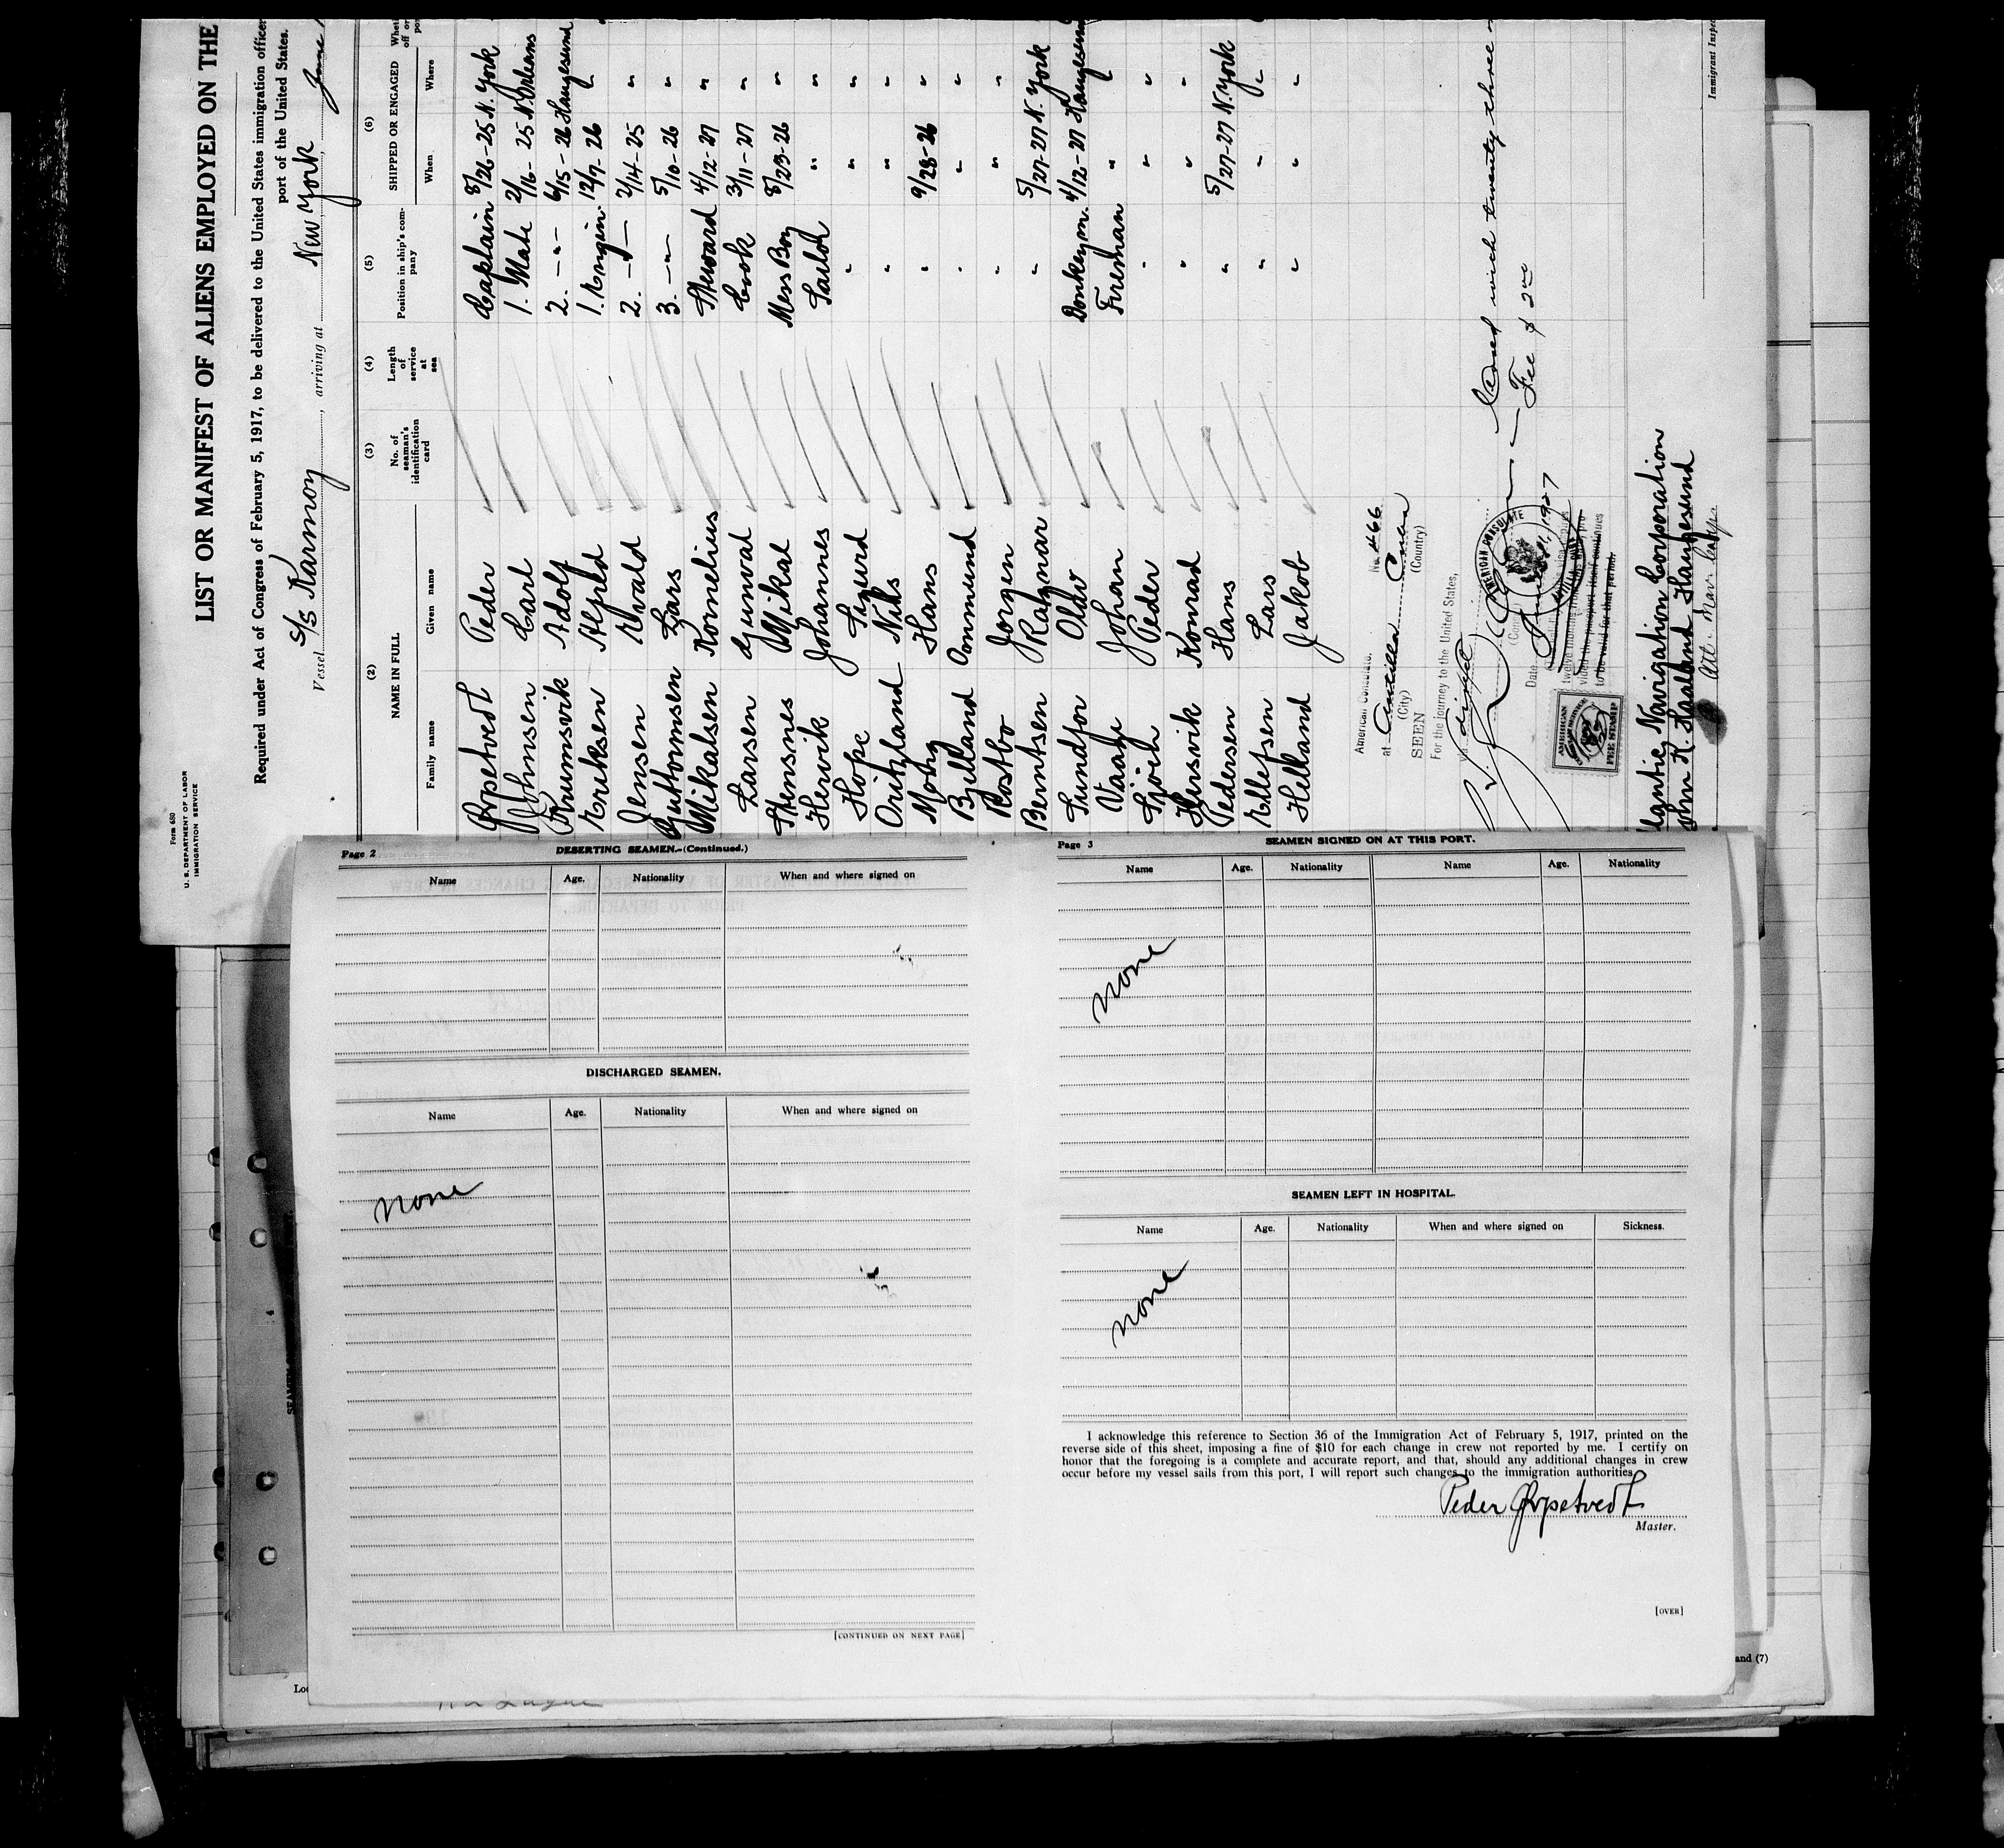 Form 680
U. S. DEPARTMENT OF LABOR
IMMIGRATION SERVICE
LIST OR MANIFEST OF ALIENS EMPLOYED ON THE
Required under Act of Congress of February 5, 1917, to be delivered to the United States immigration officer
port of the United States.
Vessel S/S Karmoy, arriving at New York, June
(2) (3) (4) (5) (6)
NAME IN FULL No. of seaman's identification card Length of service at sea Position in ship's company SHIPPED OR ENGAGED
Family name Given name When Where
Ørpetvedt Peder Captain 8/26-25 N. York
Johnsen Carl 1. Mate 2/16-25 N. Orleans
Krumsvik Adolf 2. -"- 6/15-26 Haugesund
Eriksen Alfred 1. Engin. 12/7-26 "
Jensen Evald 2. -"- 2/14-25 "
Guttormsen Lars 3. -"- 5/10-26 "
Mikalsen Kornelius Steward 4/12-27 "
Larsen Gunval Cook 3/11-27 "
Stensnes Mikal Mess Boy 8/23-26 "
Hervik Johannes Sailor " "
Hope Sigurd " " "
Nils " " "
Moby Hans " 9/28-26 "
Bjelland Aanmund " " "
Rostbo Jorgen " " "
Berntsen Ragnar " 5/27-27 N. York
Sundfor Olav Donkeym. 4/12-27 Haugesund
Vaage Johan Fireman " "
Peder " " "
Hersvik Konrad " " "
Pedersen Hans " 5/27-27 N. York
Elletsen Lars " " "
Helland Jakob " " "
American Consulate. No. 466
at Antilla Cuba
(City) (Country)
SEEN
For the journey to the United States,
AMERICAN CONSULATE
Closed with twenty three
Fee $ 2.00
Date 1927
to be valid for that period.
AMERICAN
FEE STAMP
Navigation Corporation
John K. Haaland Haugesund
Immigrant Inspec
Page 2 DESERTING SEAMEN.—(Continued.)
Name Age. Nationality When and where signed on
DISCHARGED SEAMEN.
Name Age. Nationality When and where signed on
none
[CONTINUED ON NEXT PAGE]
Page 3 SEAMEN SIGNED ON AT THIS PORT.
Name Age. Nationality Name Age. Nationality
none
SEAMEN LEFT IN HOSPITAL.
Name Age. Nationality When and where signed on Sickness.
none
I acknowledge this reference to Section 36 of the Immigration Act of February 5, 1917, printed on the
reverse side of this sheet, imposing a fine of $10 for each change in crew not reported by me. I certify on
honor that the foregoing is a complete and accurate report, and that, should any additional changes in crew
occur before my vessel sails from this port, I will report such changes to the immigration authorities.
Peder Ørpetvedt
Master.
[OVER]
and (7)